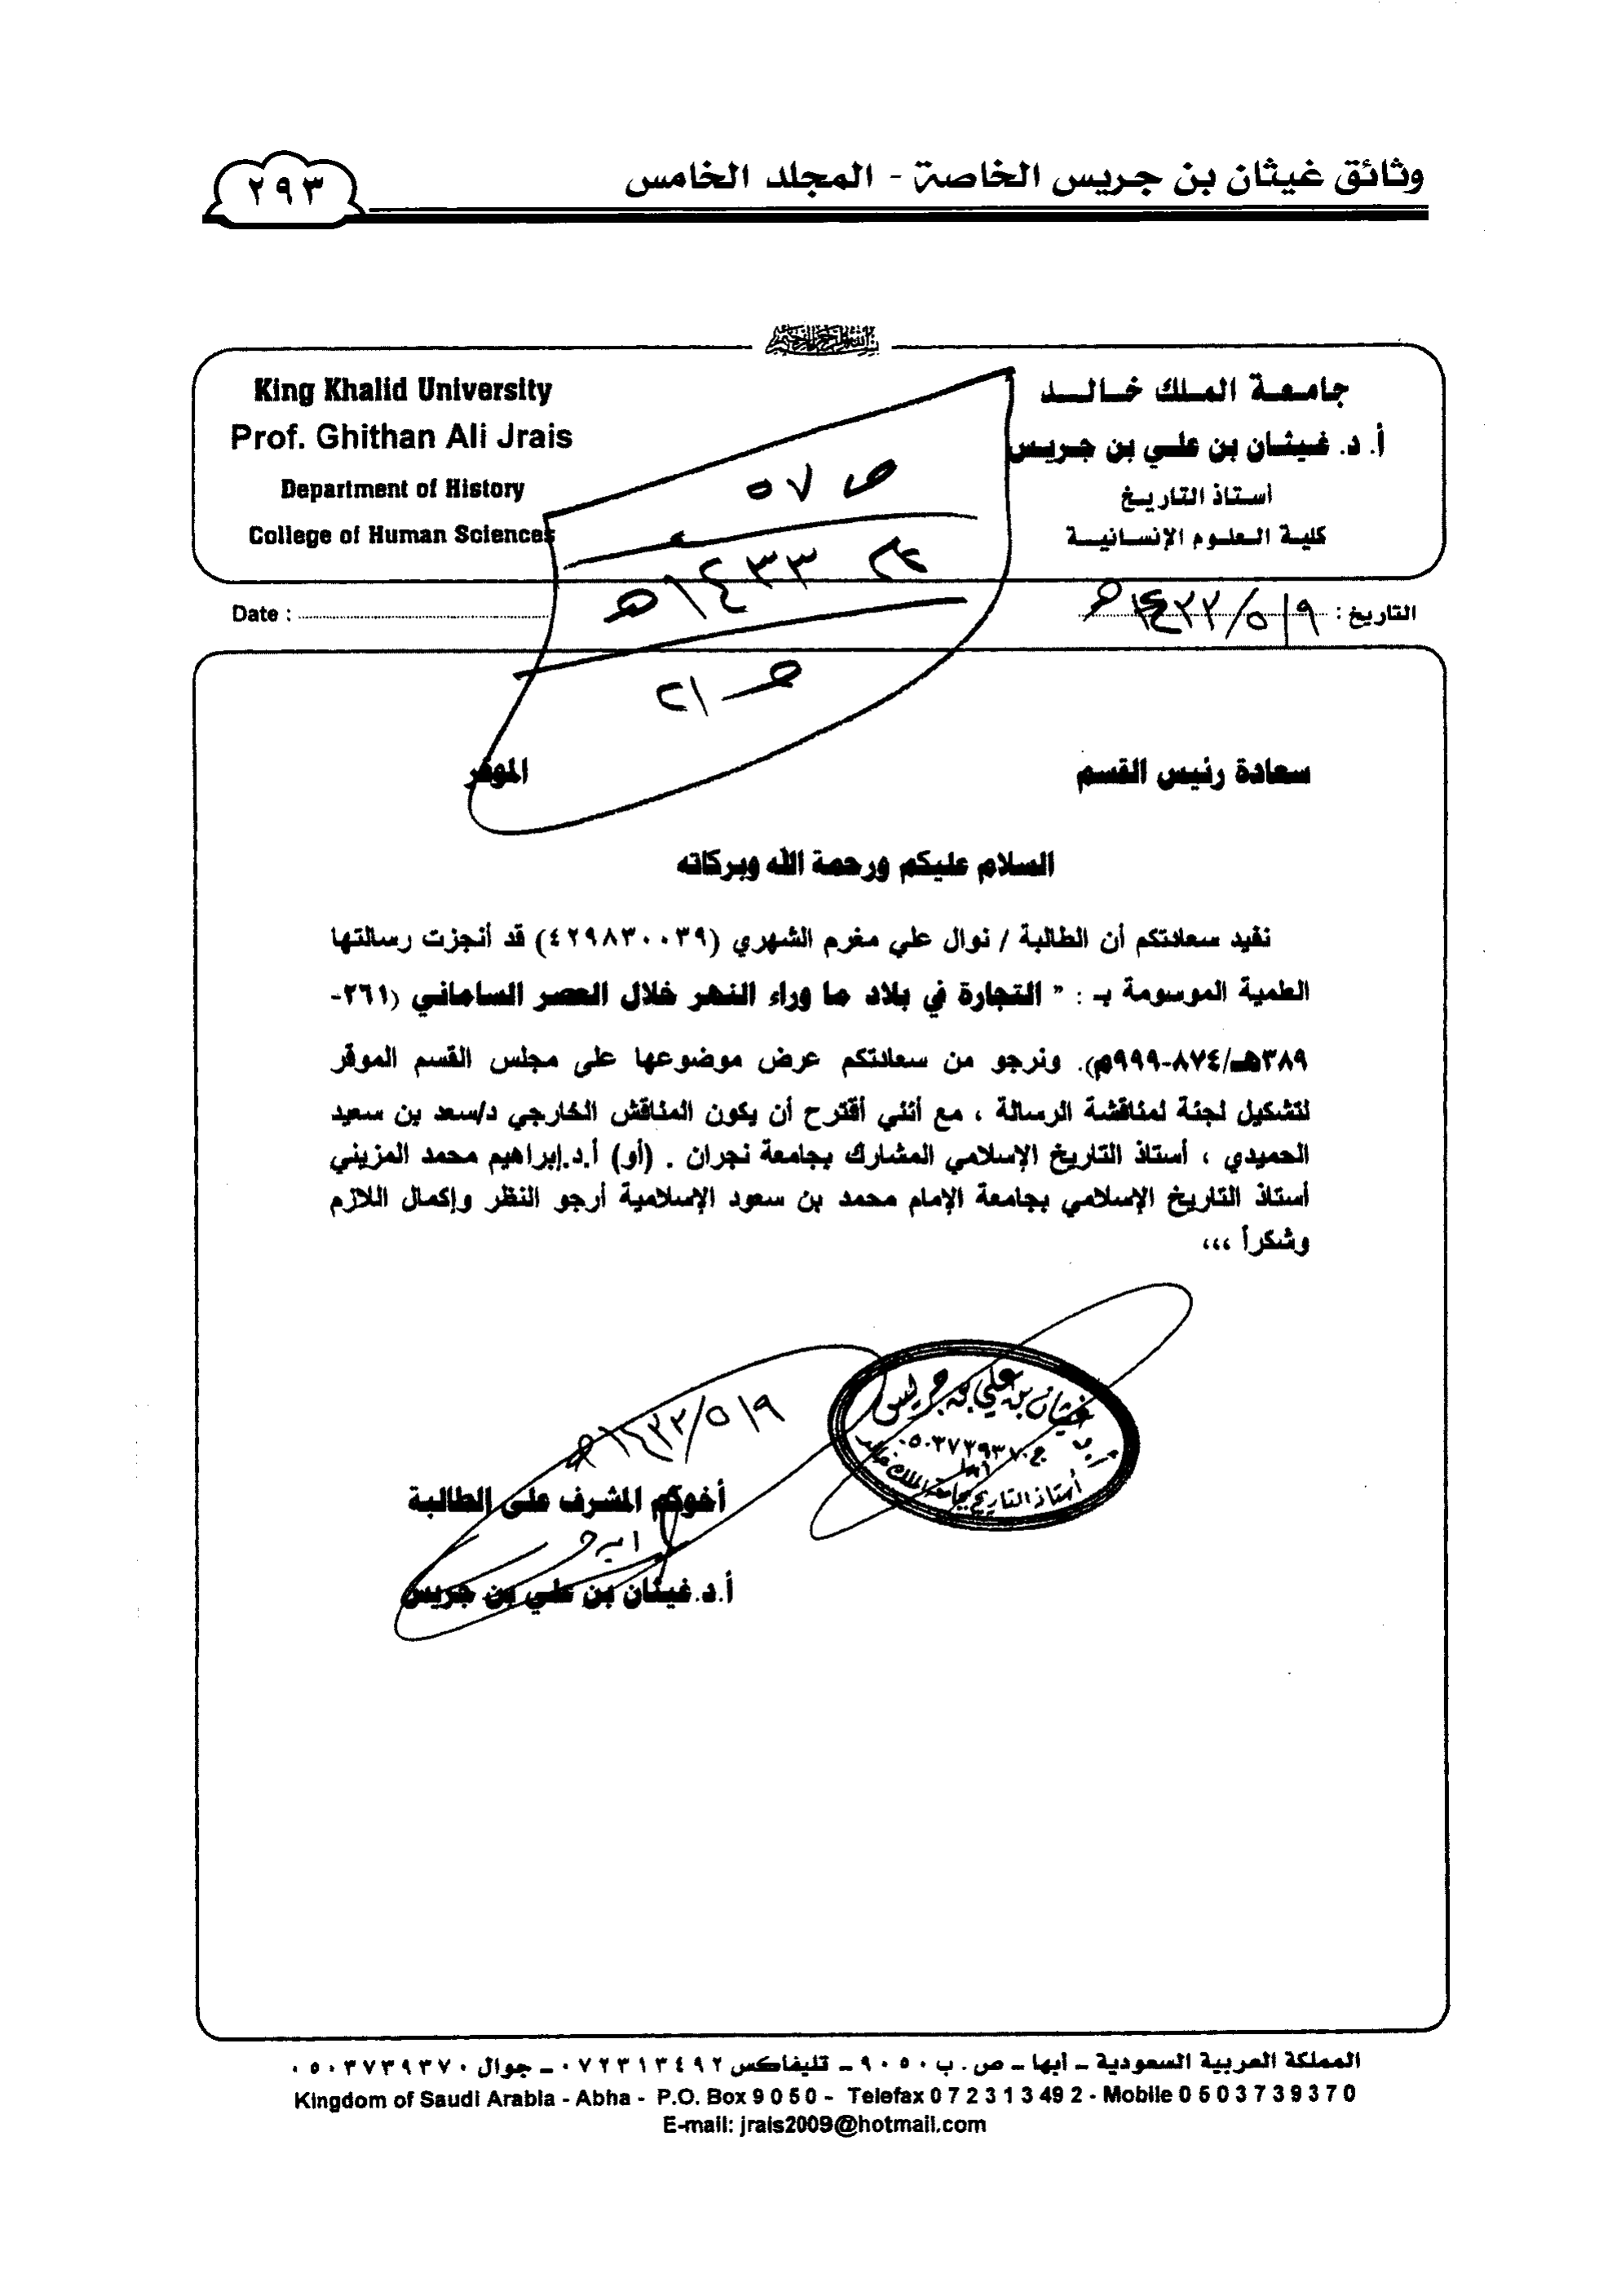 وثائق غيثان بن جريس الخاصة - المجلد الخامس
٢٩٣
بسم الله الرحمن الرحيم
جامعة الملك خالد
أ. د. غيثان بن علي بن جريس
أستاذ التاريخ
كلية العلوم الإنسانية
King Khalid University
Prof. Ghithan Ali Jrais
Department of History
College of Human Sciences
ص ٥٧
١٤٣٣ هـ
ص ٢١
التاريخ : ٩/٥/١٤٣٣هـ
Date :
سعادة رئيس القسم الموقر
السلام عليكم ورحمة الله وبركاته
نفيد سعادتكم أن الطالبة / نوال علي مغرم الشهري (٤٢٩٨٣٠٠٣٩) قد أنجزت رسالتها
العلمية الموسومة بـ : " التجارة في بلاد ما وراء النهر خلال العصر الساماني (٢٦١-
٣٨٩هـ/٨٧٤-٩٩٩م). ونرجو من سعادتكم عرض موضوعها على مجلس القسم الموقر
لتشكيل لجنة لمناقشة الرسالة ، مع أنني أقترح أن يكون المناقش الخارجي د/سعد بن سعيد
الحميدي ، أستاذ التاريخ الإسلامي المشارك بجامعة نجران . (أو) أ.د.إبراهيم محمد المزيني
أستاذ التاريخ الإسلامي بجامعة الإمام محمد بن سعود الإسلامية أرجو النظر وإكمال اللازم
وشكراً ،،،
غيثان بن علي بن جريس
ج ٠٥٠٣٧٣٩٣٧٠
أستاذ التاريخ بجامعة الملك خالد
٩/٥/١٤٣٣هـ
أخوكم المشرف على الطالبة
أ.د.غيثان بن علي بن جريس
المملكة العربية السعودية - أبها - ص. ب ٩٠٥٠ - تليفاكس ٠٧٢٣١٣٤٩٢ - جوال ٠٥٠٣٧٣٩٣٧٠
Kingdom of Saudi Arabia - Abha - P.O. Box 9 0 5 0 - Telefax 0 7 2 3 1 3 49 2 - Mobile 0 5 0 3 7 3 9 3 7 0
E-mail: jrais2009@hotmail.com